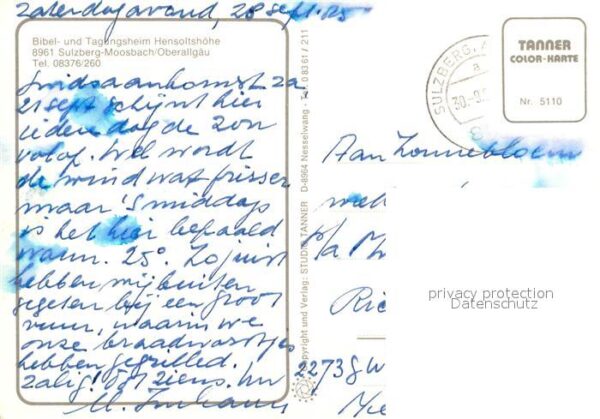 Zaterdagavond, 28 sept. 85
Bibel- und Tagungsheim Hensoltshöhe
8961 Sulzberg-Moosbach/Oberallgäu
Tel. 08376/260
Sinds aankomst za
21 sept schijnt hier
iedere dag de zon
volop. Wel wordt
de wind wat frisser
maar 's middags
is het hier bepaald
warm. 25°. Zojuist
hebben wij buiten
gegeten bij een groot
vuur, waarin we
onze braadworstjes
hebben gegrilled.
Zalig! Tot ziens.
M.
Copyright und Verlag: STUDIO TANNER · D-8964 Nesselwang · Tel. 0 83 61 / 211
SULZBERG,
a
30.-9.
TANNER
COLOR-KARTE
Nr. 5110
Aan Zonnebloem
med
p/a
Ric
2273 GW
privacy protection
Datenschutz